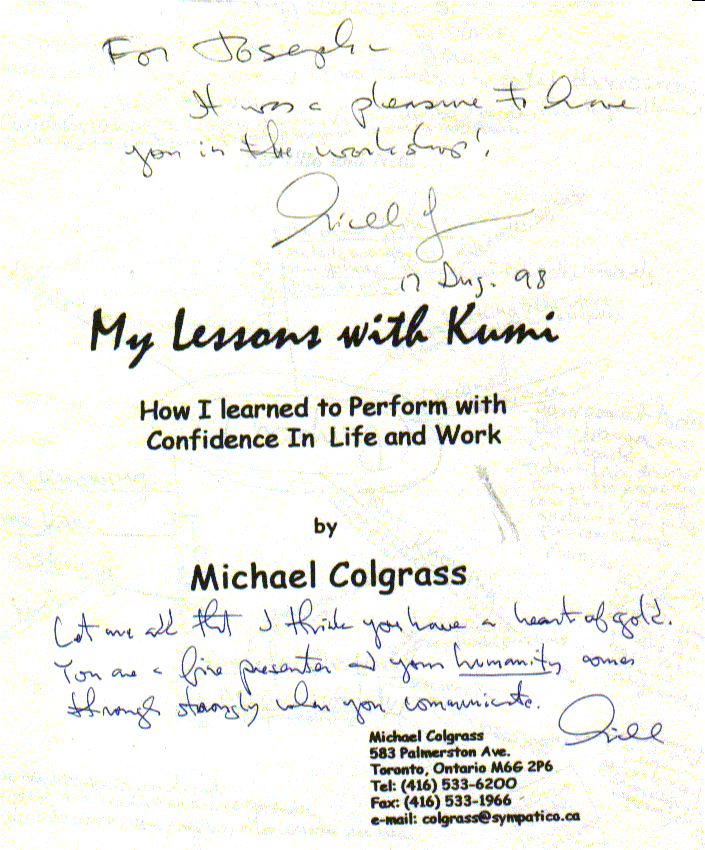 For Joseph
It was a pleasure to have
you in the workshop!
17 Aug. 98
My Lessons with Kumi
How I learned to Perform with
Confidence In Life and Work
by
Michael Colgrass
Let me add that I think you have a heart of gold.
You are a fine presenter and your humanity comes
through strongly when you communicate.
Michael Colgrass
583 Palmerston Ave.
Toronto, Ontario M6G 2P6
Tel: (416) 533-6200
Fax: (416) 533-1966
e-mail: colgrass@sympatico.ca